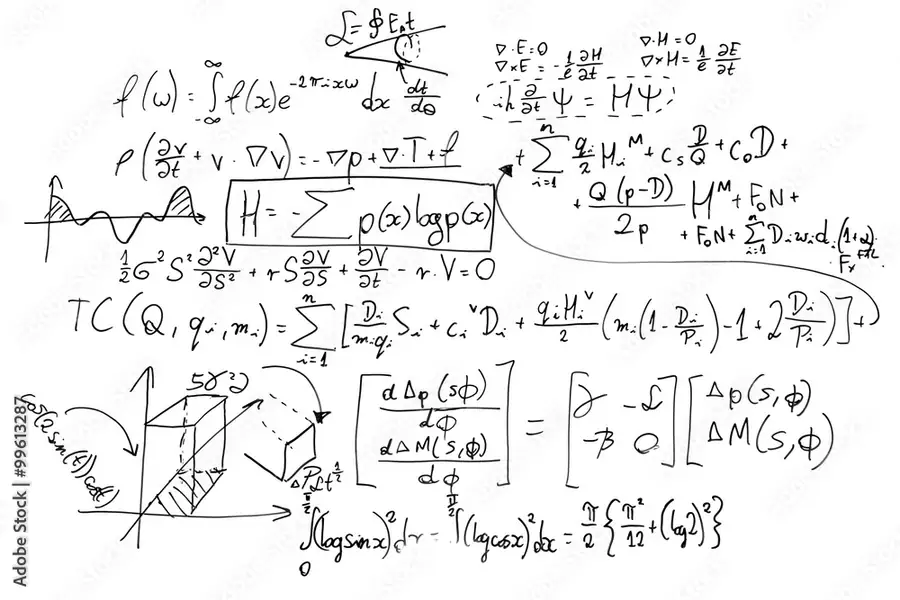 ℒ = ∮E₀t
∇·E=0 ∇·H=0
∇×E = -1/e ∂H/∂t ∇×H = 1/e ∂E/∂t
f(ω) = ∫_{-∞}^{∞} f(x)e^{-2πixω} dx dt/dθ
iħ ∂/∂t Ψ = HΨ
ρ(∂v/∂t + v·∇v) = -∇p + ∇·T + f
+ Σ_{i=1}^{n} q_i/2 H_i^M + c_s D/Q + c_0 D +
H = -Σ p(x) log p(x)
+ Q(p-D)/2p H^M + F_0N +
+ F_0N + Σ_{i=1}^{n} D_i w_i d_i
1/2 σ² S² ∂²V/∂S² + rS ∂V/∂S + ∂V/∂t - r·V = 0
TC(Q, q_i, m_i) = Σ_{i=1}^{n} [D_i/m_iq_i S_i + c_i^v D_i + q_iH_i^v/2 (m_i(1-D_i/P_i) -1+2 D_i/P_i)] +
[d Δp(s,ϕ)/dϕ = [ -ℒ] [Δp(s,ϕ)
dΔM(s,ϕ)/dϕ] [-β 0] ΔM(s,ϕ)]
∫_0^{π/2} (log sin x)² dx = ∫^{π/2} (log cos x)² dx = π/2 {π²/12 + (log 2)²}
Adobe Stock | #99613287